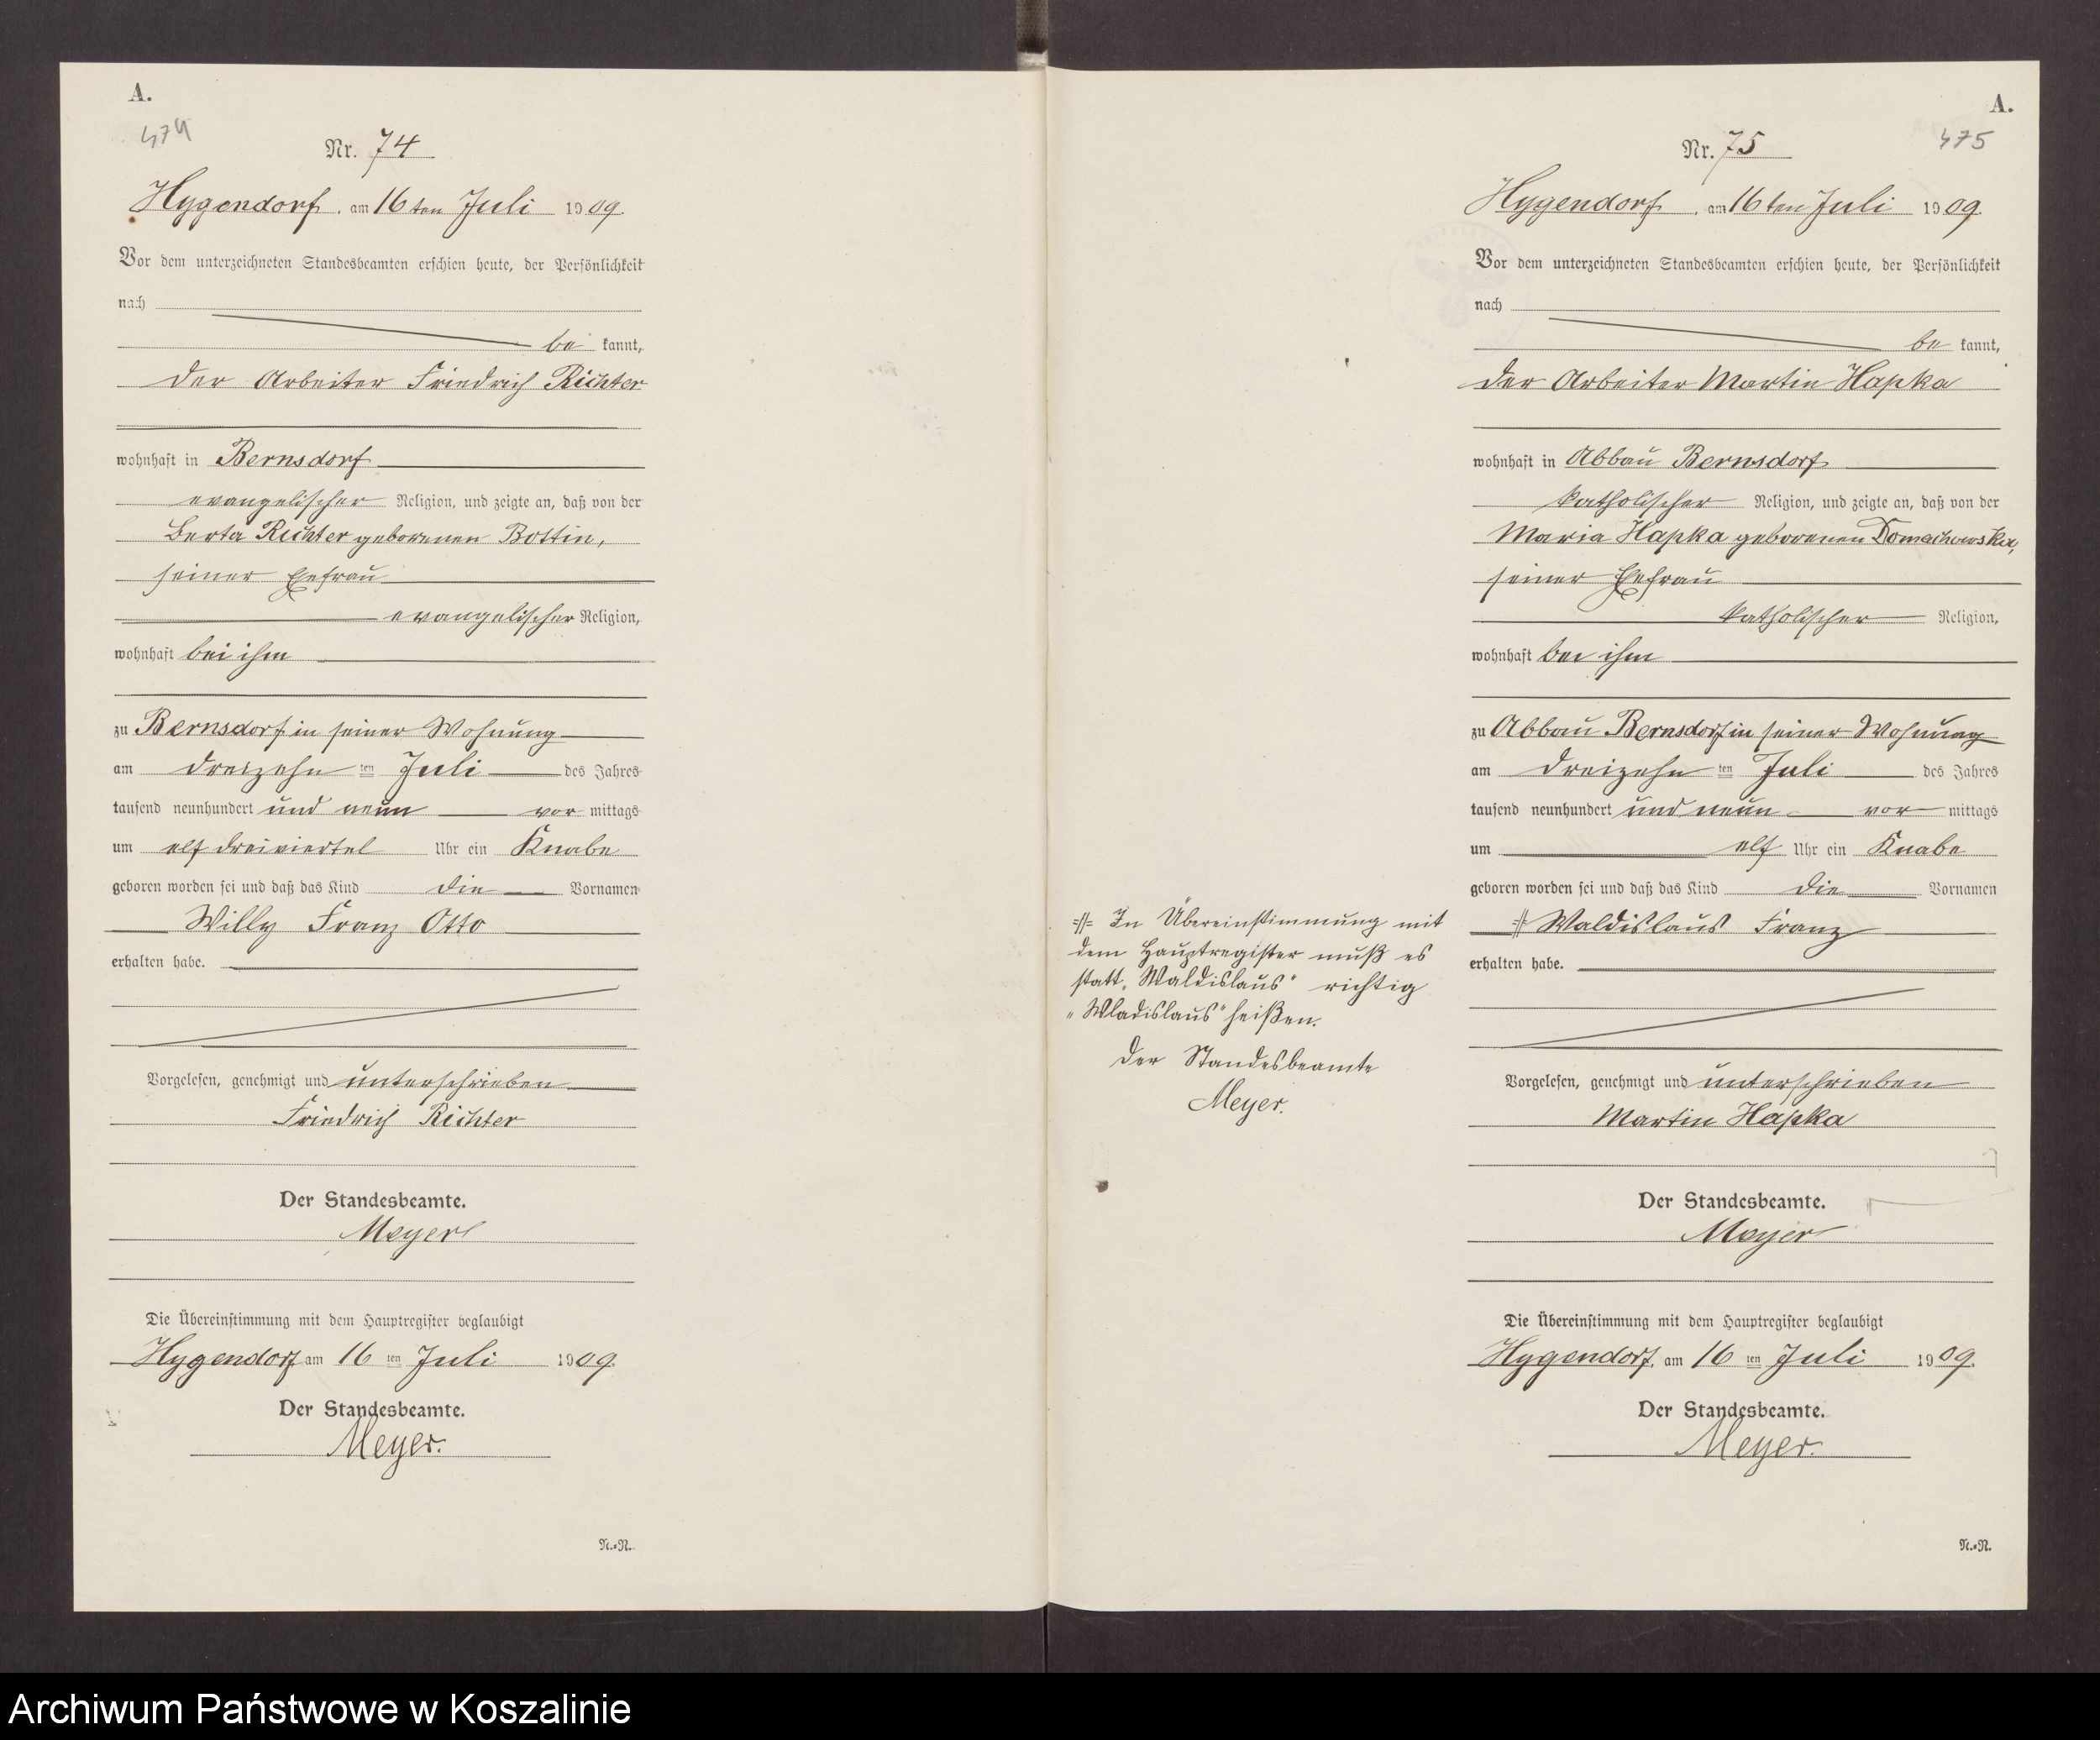 A.
474
Nr. 74
Hygendorf, am 16ten Juli 1909.
Vor dem unterzeichneten Standesbeamten erschien heute, der Persönlichkeit
nach
be kannt,
der Arbeiter Friedrich Richter
wohnhaft in Bernsdorf
evangelischer Religion, und zeigte an, daß von der
Berta Richter geborenen Bottin,
seiner Ehefrau
evangelischer Religion,
wohnhaft bei ihm
zu Bernsdorf in seiner Wohnung
am dreizehn ten Juli des Jahres
tausend neunhundert und neun vor mittags
um elf dreiviertel Uhr ein Knabe
geboren worden sei und daß das Kind die Vornamen
Willy Franz Otto
erhalten habe.
Vorgelesen, genehmigt und unterschrieben
Friedrich Richter
Der Standesbeamte.
Meyer
Die Übereinstimmung mit dem Hauptregister beglaubigt
Hygendorf am 16 ten Juli 1909.
Der Standesbeamte.
Meyer.
N.=N.
A.
475
Nr. 75
Hygendorf, am 16ten Juli 1909.
Vor dem unterzeichneten Standesbeamten erschien heute, der Persönlichkeit
nach
be kannt,
der Arbeiter Martin Hapka
wohnhaft in Abbau Bernsdorf
katholischer Religion, und zeigte an, daß von der
Maria Hapka geborenen Domachowska,
seiner Ehefrau
katholischer Religion,
wohnhaft bei ihm
zu Abbau Bernsdorf in seiner Wohnung
am dreizehn ten Juli des Jahres
tausend neunhundert und neun vor mittags
um elf Uhr ein Knabe
geboren worden sei und daß das Kind die Vornamen
Waldislaus Franz
erhalten habe.
In Übereinstimmung mit
dem Hauptregister muß es
statt „Waldislaus" richtig
„Wladislaus" heißen.
Der Standesbeamte
Meyer.
Vorgelesen, genehmigt und unterschrieben
Martin Hapka
Der Standesbeamte.
Meyer
Die Übereinstimmung mit dem Hauptregister beglaubigt
Hygendorf, am 16 ten Juli 1909.
Der Standesbeamte.
Meyer.
N.=N.
Archiwum Państwowe w Koszalinie